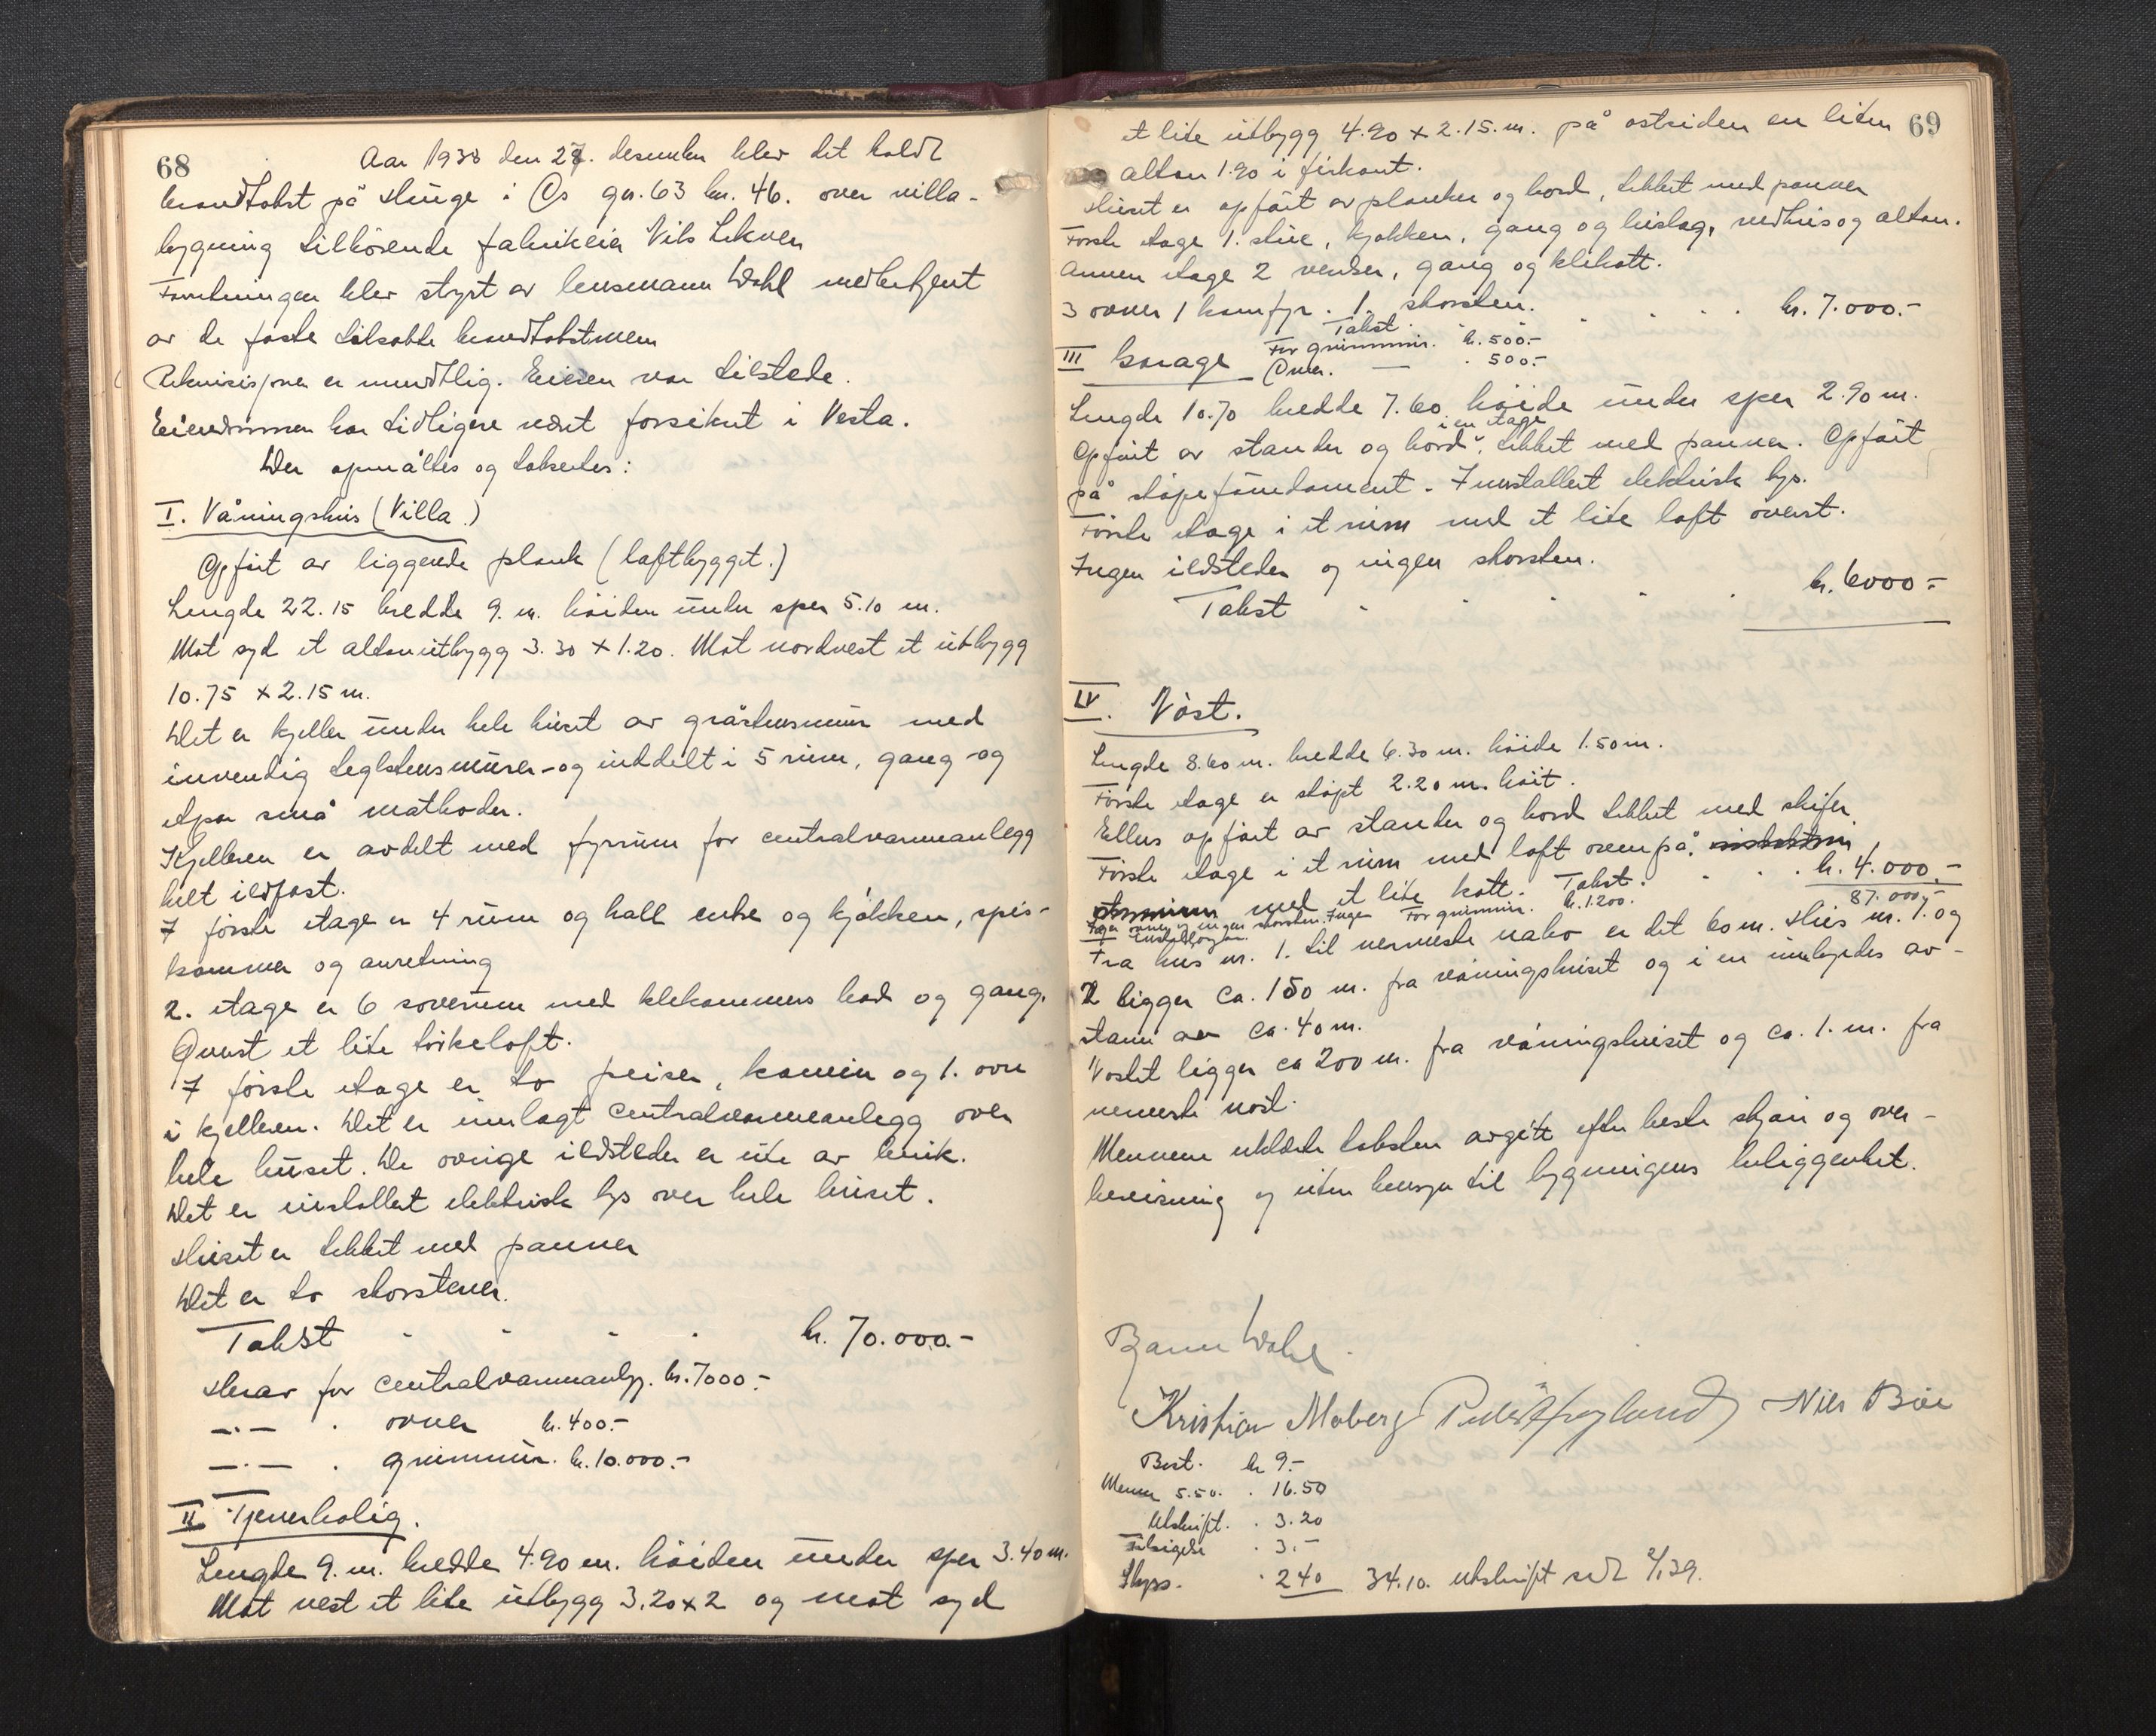 68
Aar 1938 den 27. desember blev det holdt
brandtakst på Hauge i Os gn. 63 bn. 46. over villa-
bygning tilhörende fabrikeier Nils Lekven
Forretningen blev styrt av lensmann Dahl medbetjent
av de faste tilsatte brandtakstmenn
Rekvisisjonen er mundtlig. Eieren var tilstede.
Eiendommen har tidligere været forsikret i Vesta.
Der opmåltes og taksertes:
I. Våningshus (Villa.)
Opfört av liggende plank (laftbygget.)
Lengde 22.15 bredde 9. m. höiden under sper 5.10 m.
Mot syd et altanutbygg 3.30 x 1.20. Mot nordvest et utbygg
10.75 x 2.15 m.
Det er kjeller under hele huset av gråstensmur med
invendig teglstensmurer og inddelt i 5 rum, gang og
et par små matboder.
Kjelleren er avdelt med fyrrum for centralvarmeanlegg
helt ildfast.
I förste etage er 4 rum og hall entre og kjökken, spis-
kammer og anretning
2. etage er 6 soverum med klekammers bad og gang.
Överst et lite törkeloft.
I förste etage er to peiser, kamin og 1. ovn
i kjelleren. Det er innlagt centralvarmeanlegg over
hele huset. De övrige ildsteder er ute av bruk.
Det er installert elektrisk lys over hele huset.
Huset er tekket med panner
Det er to skorstener.
Takst kr. 70.000.-
Herav for centralvarmeanlegg. kr. 7000.-
-"- . ovner kr. 400.-
-"- . grunnmur. kr. 10.000.-
II Tjenerbolig.
Lengde 9. m. bredde 4.90 m. höiden under sper 3.40 m.
Mot vest et lite utbygg 3.20 x 2 og mot syd
69
et lite utbygg 4.90 x 2.15. m. på ostsiden en liten
altan 1.90 i firkant.
Huset er opfört av planker og bord, tekket med panner
Förste etage 1. stue, kjökken, gang og bislag, vedhus og altan.
Annen etage 2 verelser, gang og klekott.
3 ovner 1 komfyr. 1. skorsten.
Takst kr. 7.000.-
For grunnmur. kr. 500.-
Ovner. - . 500.-
III Garage
Lengde 10.70 bredde 7.60 höide under sper 2.90 m.
i en etage
Opfört av stander og bord, tekket med panner. Opfört
på stöpefundament. Innstallert elektrisk lys.
Förste etage i et rum med et lite loft överst.
Ingen ildsteder og ingen skorsten.
Takst kr. 6000.-
IV. Nöst.
Lengde 8.60 m. bredde 6.30 m. höide 1.50 m.
Förste etage er stöpt 2.20 m. höit.
Ellers opfört av stander og bord tekket med skifer
Förste etage i et rum med loft ovenpå.
med et lite kott. Takst. kr. 4.000.-
87.000.-
Ingen ovner og ingen skorsten. Ingen For grunnmur. kr. 1.200.
Fra hus nr. 1. til nærmeste nabo er det 60 m. Hus nr. 1. og
2 ligger ca. 150 m. fra våningshuset og i en innbyrdes av-
stann av ca. 40 m.
Nöstet ligger ca 200 m. fra våningshuset og ca. 1. m. fra
nærmeste nöst.
Mennene erklærte taksten avgitt efter beste skjön og over-
bevisning og uten hensyn til bygningens beliggenhet.
Bjarne Dahl
Kristian Moberg Nils Böe
Best. kr 9.-
Menn 5.50. . 16.50
Utskrift. . 3.20
Tilsigelse . 3.-
Skyss. . 2 40 34.10. Utskrift sendt 2/1 39.